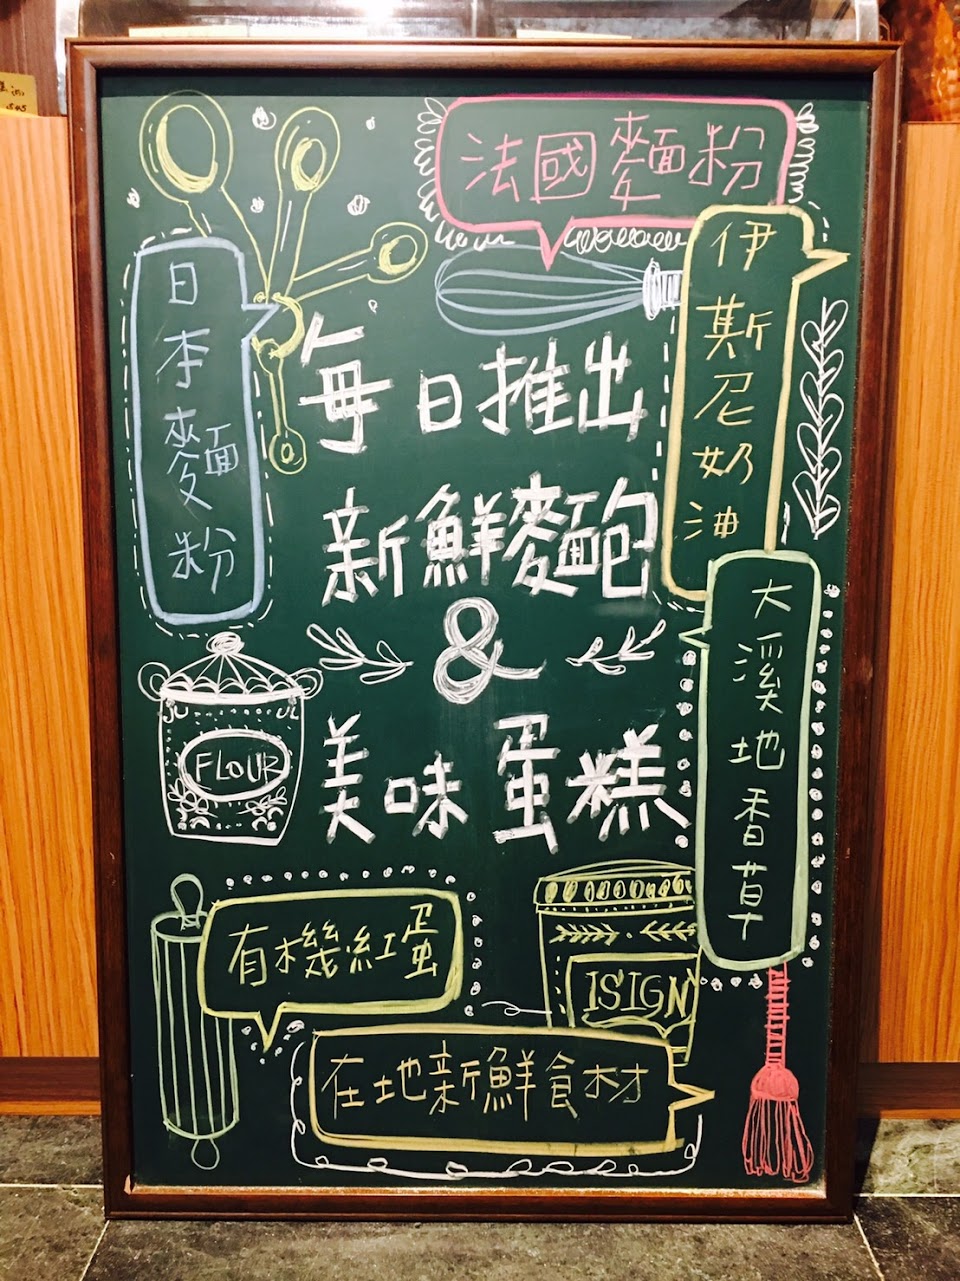 法國麵粉
伊斯尼奶油
日本麵粉
每日推出
新鮮麵包
&
美味蛋糕
大溪地香草
FLOUR
有機紅蛋
ISIGN
在地新鮮食材